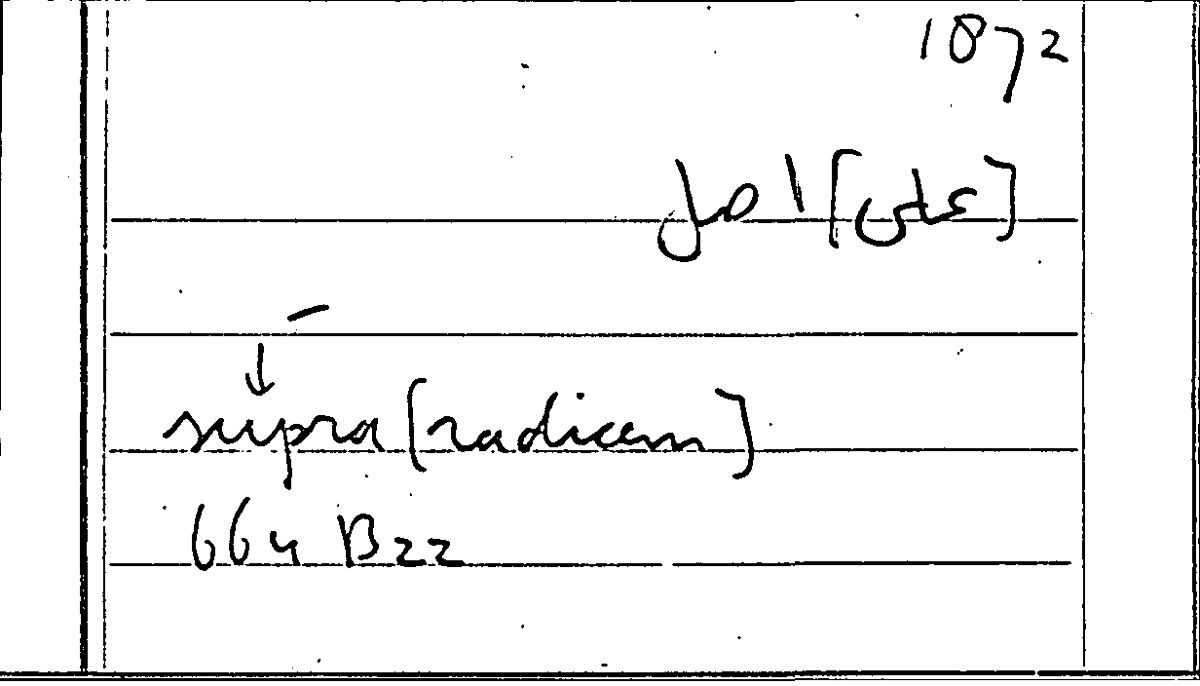 1872
[على] اصل
–
↓
supra [radicem]
664 B22